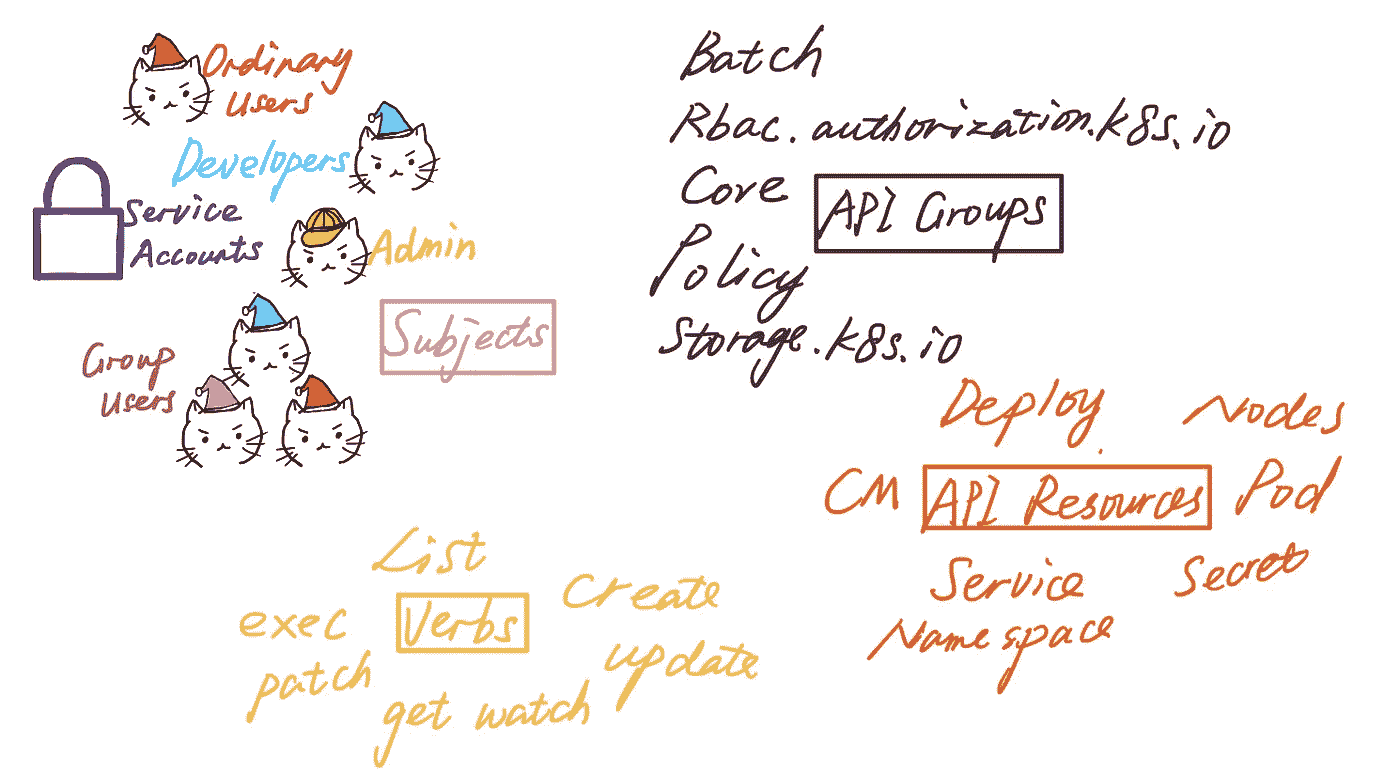 Ordinary
Users
Developers
Service
Accounts
Admin
Subjects
Group
Users
Batch
Rbac.authorization.k8s.io
Core
API Groups
Policy
Storage.k8s.io
Deploy
Nodes
CM
API Resources
Pod
Service
Secret
Namespace
List
exec
Verbs
Create
patch
update
get watch